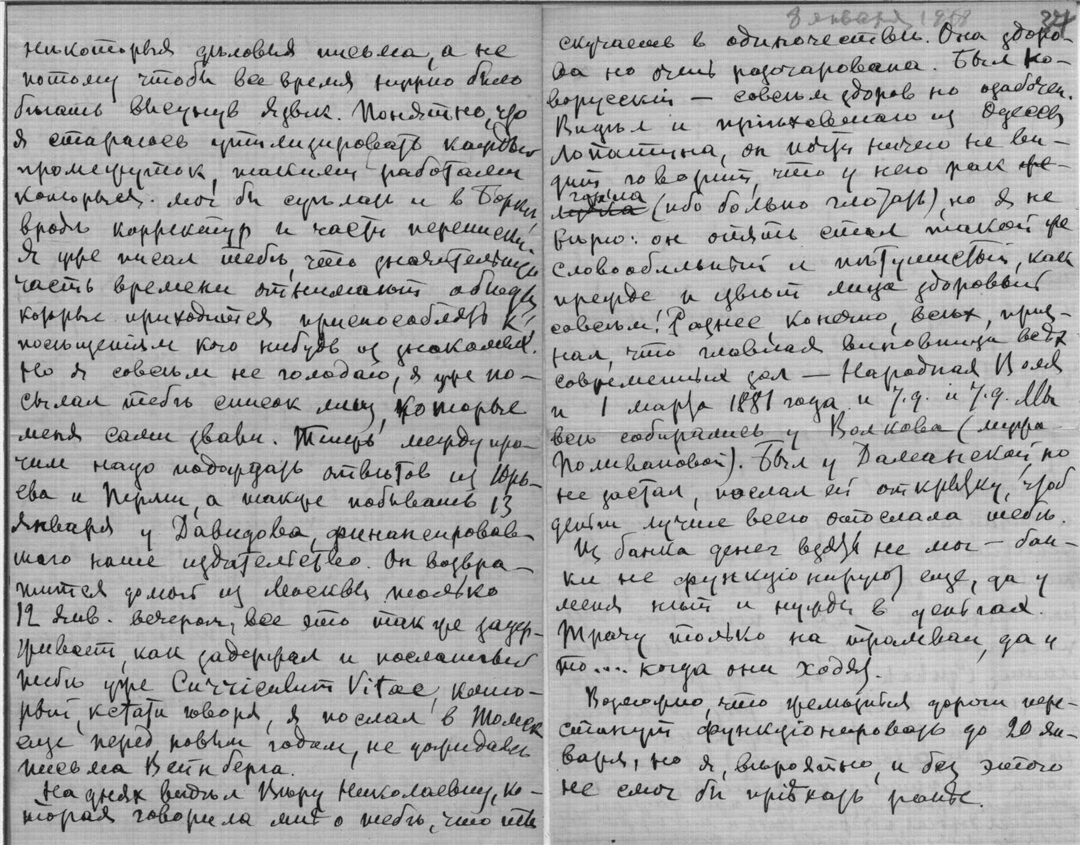 некоторыя деловыя письма, а не
потому чтобы все время нужно было
бегать высунув язык. Понятно, что
я стараюсь утилизировать каждый
промежуток, такими работами
которыя мог бы сделать и в Борке,
вроде корректур и части переписки.
Я уже писал тебе, что значительную
часть времени отнимают обеды,
которые приходится приспособлять к
посещениям кого нибудь из знакомых.
Но я совсем не голодаю, я уже по-
сылал тебе список лиц, которые
меня сами звали. Теперь между про-
чим надо подождать ответов из Юрь-
ева и Перми, а также побывать 13
января у Давидова, финансировав-
шаго наше издательство. Он возвра-
тится домой из Москвы только
12 янв. вечером, все это также задер-
живает, как задержал и посланный
тебе уже Curriculum Vitae, кото-
рый, кстати говоря, я послал в Томск
еще перед новым годом, не дожидаясь
письма Вейнберга.
На днях видел Веру Николаевну, ко-
торая говорила мне о тебе, что ты
8 января 1918
скучаешь в одиночестве. Она здоро-
ва но очень разочарована. Был Но-
ворусский — совсем здоров но озабочен.
Видел и приехавшаго из Одессы
Лопатина, он почти ничего не ви-
дит, говорит, что у него рак же-
горла
лудка (ибо больно глотать), но я не
верю: он опять стал такой же
словообильный и петушистый, как
прежде и цвет лица здоровый
совсем! Разнес, конечно, всех, приз-
нал, что главная виновница всех
современных зол — Народная Воля
и 1 марта 1881 года и т.д. и т.д. Мы
все собирались у Волкова (мужа
Поливановой). Был у Даманской но
не застал, послал ей открытку, чтоб
деньги лучше всего отослала тебе.
Из банка денег взять не мог — бан-
ки не функционируют еще, да у
меня нет и нужды в деньгах.
Трачу только на трамваи, да и
то.... когда они ходят.
Возможно, что железныя дороги пере-
станут функционировать до 20 ян-
варя, но я, вероятно, и без этого
не смог бы приехать раньше.